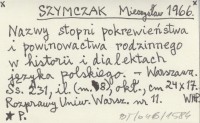 SZYMCZAK Mieczysław 1966.
Nazwy stopni pokrewieństwa
i powinowactwa rodzinnego
w historii i dialektach
języka polskiego. – Warszawa.
Ss. 231, il. (m. 8), okł., cm 24x17.
Rozprawy Uniw. Warsz. nr 11.
* P.